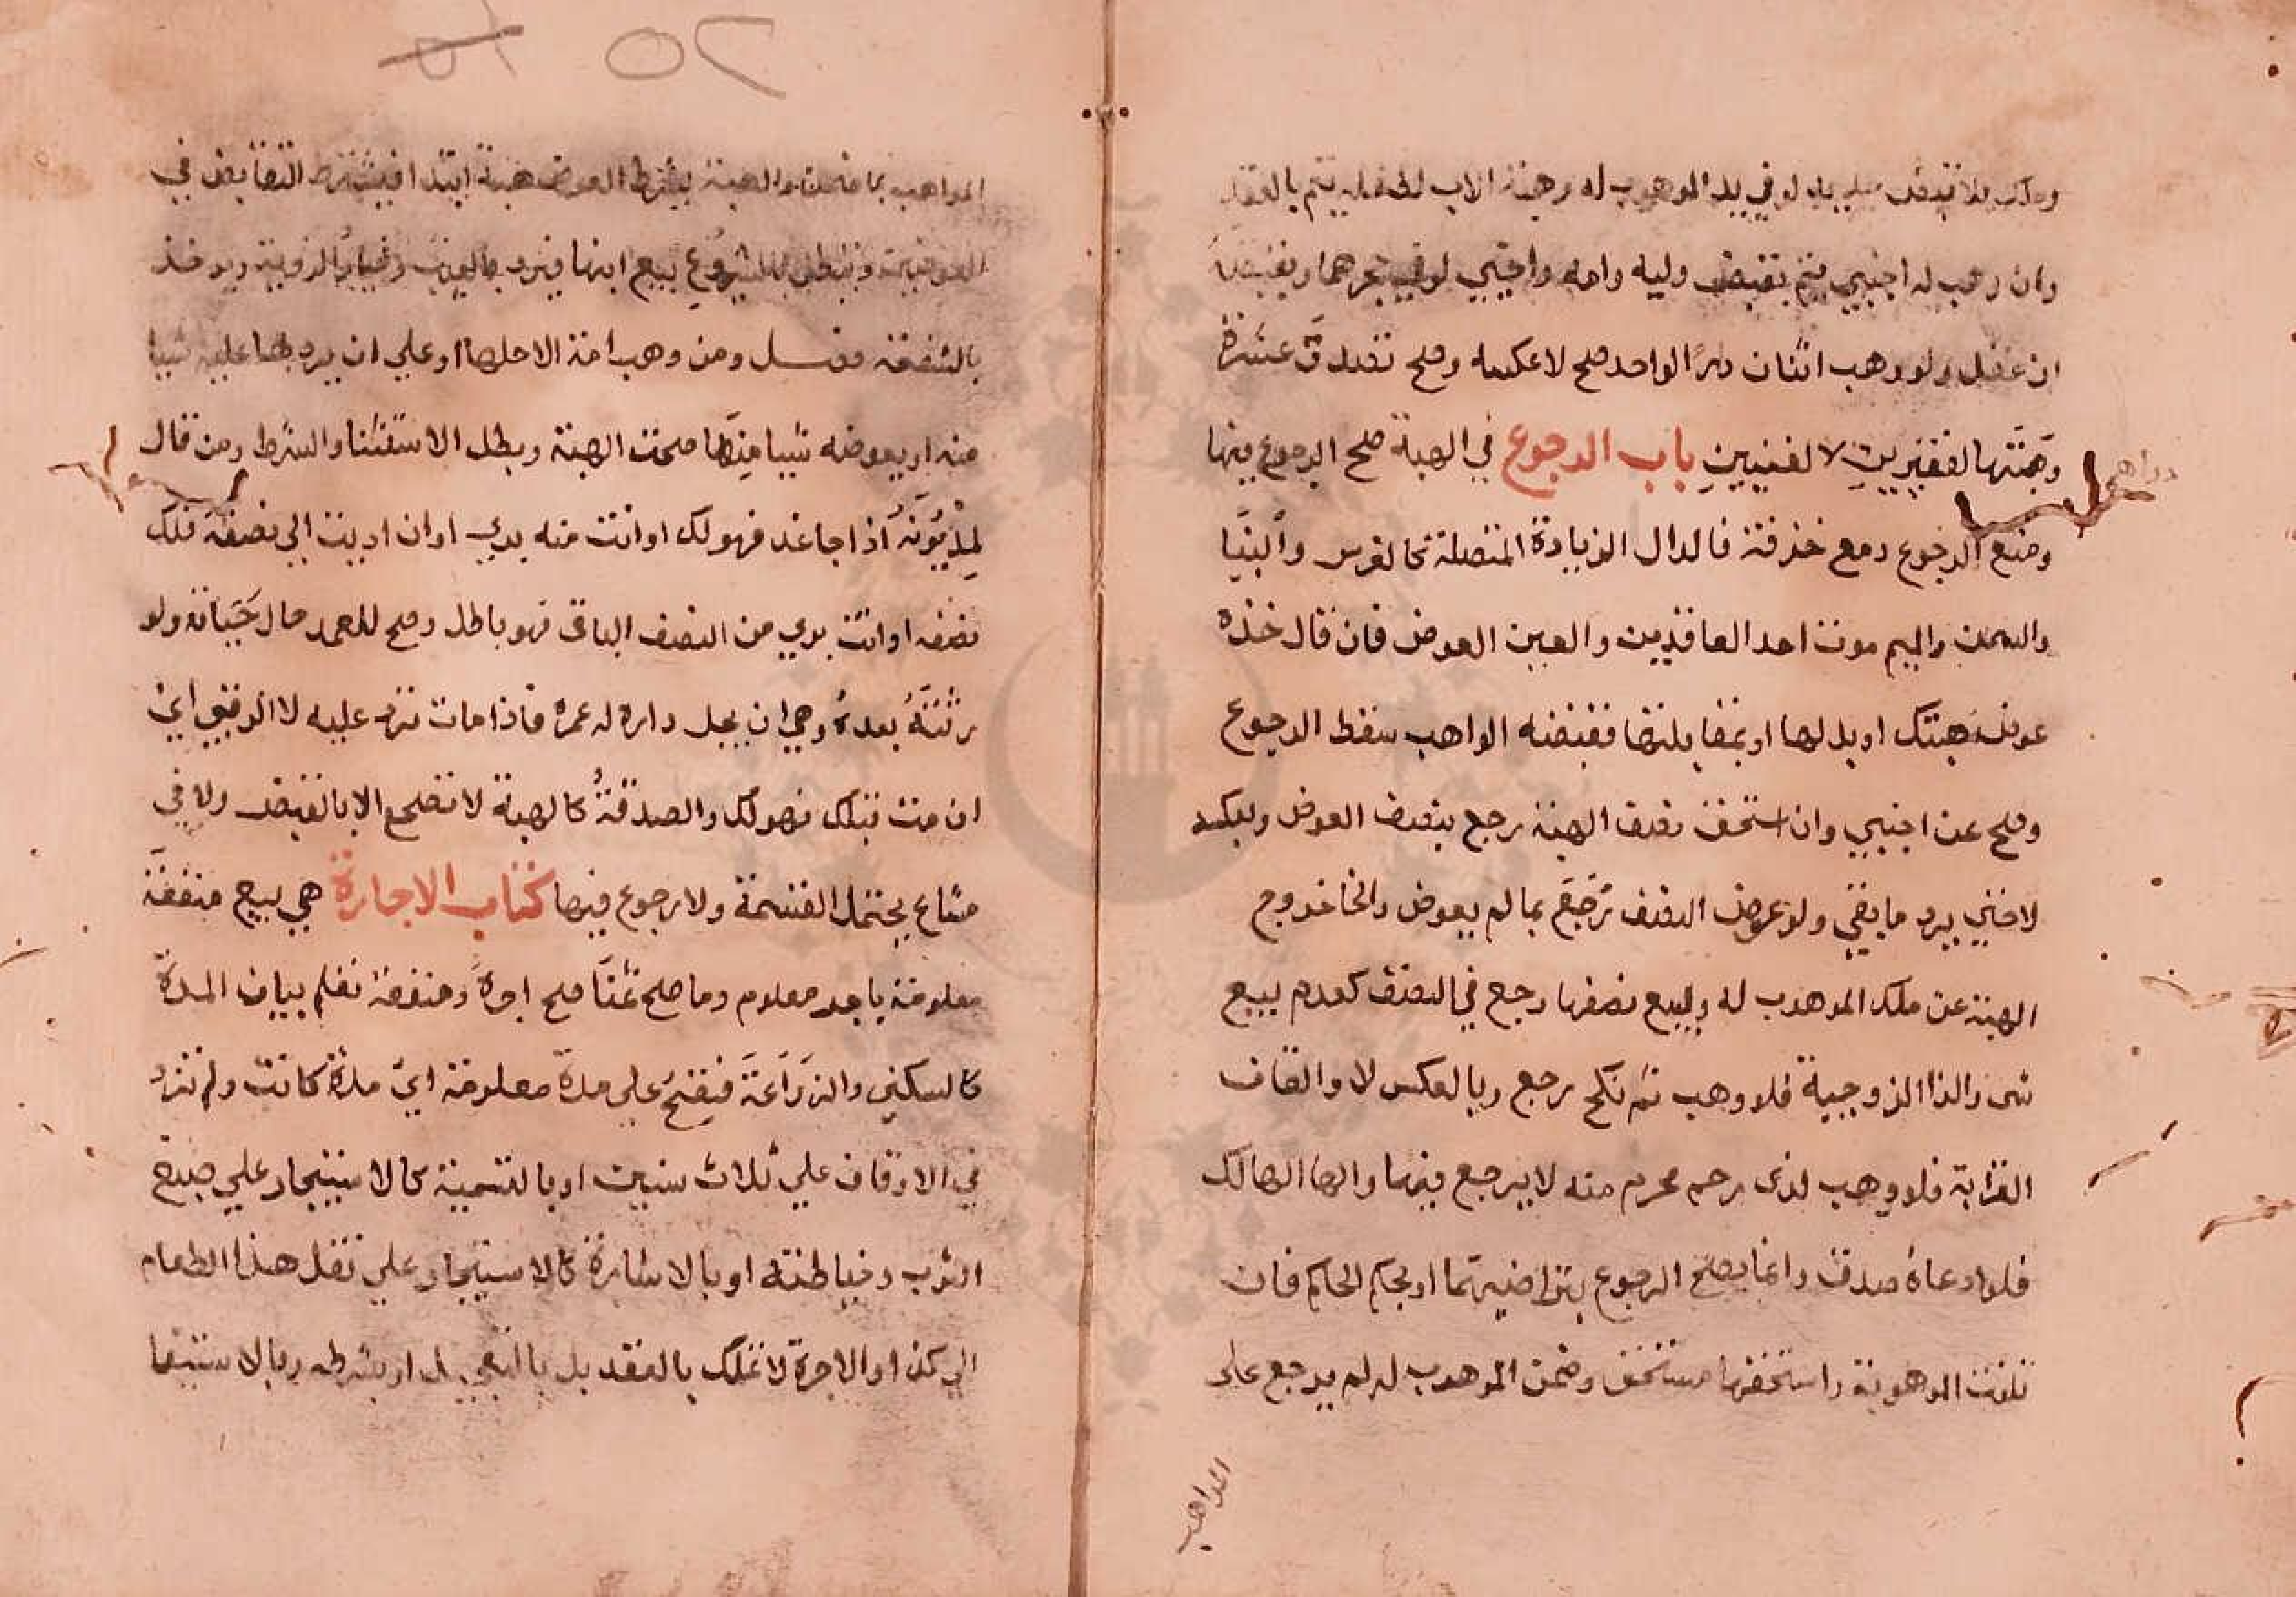 وملك بلا قبض جديد لو في يد الموهوب له وهبة الاب لطفله يتم بالعقد
وان وهب له اجنبي يتم بقبض وليه وامه واجنبي لو في حجرهما وبقبضه
ان عقل ولو وهب اثنان دارا لواحد صح لا عكسه وصح تصدق عشرة
دراهم
وهبتها لفقيرين لا لغنيين باب الرجوع في الهبة صح الرجوع فيها
ومنع الرجوع دمع خزقه فالدال الزيادة المتصلة كالغرس والبنا
والسمن والميم موت احد العاقدين والعين العوض فان قال خذه
عوض هبتك او بدلها او بمقابلتها فقبضه الواهب سقط الرجوع
وصح عن اجنبي وان استحق نصف الهبة رجع بنصف العوض وبعكسه
لا حتي يرد ما بقي ولو عوض النصف رجع بما لم يعوض والخا خروج
الهبة عن ملك الموهوب له وببيع نصفها رجع في النصف كعدم بيع
شى والزا الزوجية فلو وهب ثم نكح رجع وبالعكس لا والقاف
القرابة فلو وهب لذى رحم محرم منه لا يرجع فيها والها الهالك
فلو ادعاه صدق وانما يصح الرجوع بتراضيهما او بحكم الحاكم فان
تلفت الموهوبة واستحقها مستحق وضمن الموهوب له لم يرجع على
الواهب
٢٥
الواهب بما ضمن والهبة بشرط العوض هبة ابتدا فيشترط التقابض في
العوضين وتبطل بالشيوع بيع انتها فيرد بالعيب وخيار الروية ويوخذ
بالشفعة فصل ومن وهب امة الا حملها او علي ان يردها عليه شيا
منه او يعوضه شيا منها صحت الهبة وبطل الاستثنا والشرط ومن قال
لمديونه اذا جا غد فهو لك او انت منه بري او ان اديت الي نصفه فلك
نصفه او انت بري من النصف الباقي فهو باطل وصح للمعمر حال حياته ولو
رثته بعده وهي ان يجعل داره له عمره فاذا مات ترد عليه لا الرقبي اي
ان مت قبلك فهو لك والصدقة كالهبة لا تصح الا بالقبض ولا في
مشاع يحتمل القسمة ولا رجوع فيها كتاب الاجارة هي بيع منفعة
معلومة باجر معلوم وما صح ثمنا صح اجرة ومنفعة تعلم ببيان المدة
كالسكني والزراعة فيصح علي مدة معلومة اي مدة كانت ولم تزد
في الاوقاف علي ثلاث سنين او بالتسمية كالاستيجار علي صبغ
الثوب وخياطته او بالاشارة كالاستيجار علي نقل هذا الطعام
الي كذا والاجرة لا تملك بالعقد بل بالتعجيل او بشرطه وبالاستيفا